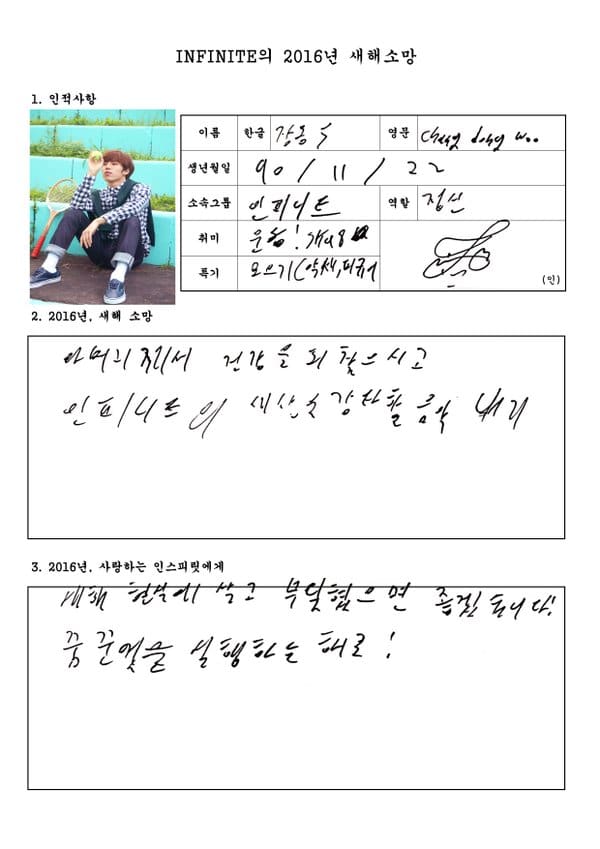 INFINITE의 2016년 새해소망
1. 인적사항
이름 한글 장동우 영문 Chang dong woo
생년월일 90/11/22
소속그룹 인피니트 역할 정신
취미 운동!
특기 모으기(악세,피규어
(인)
2. 2016년, 새해 소망
아버지께서 건강을 되찾으시고
인피니트의 음악 내기
3. 2016년, 사랑하는 인스피릿에게
새해 현실에 살고 부딪혔으면 좋겠습니다!
꿈꾼것을 실행하는 해로!